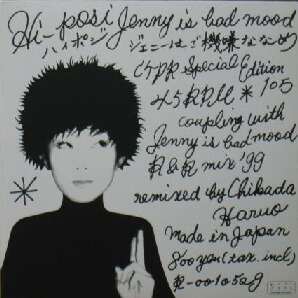 Hi-posi Jenny is bad mood
ハイポジ ジェニーはご機嫌ななめ
Special Edition
45RPM * 105
coupling with
Jenny is bad mood
R&R mix '99
remixed by Chikada
Haruo
made in Japan
800yen (tax. incl)